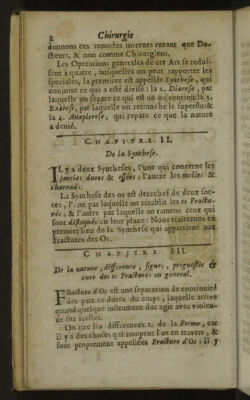 2 Chirurgie
donnons ces remedes internes entant que Do-
cteurs, & non comme Chirurgiens.
Les Operations generales de cet Art se redui-
sent à quatre, ausquelles on peut rapporter les
speciales, la premiere est appellée Synthese, qui
conjoint ce qui a esté divisé: la 2. Diærese, par
laquelle on separe ce qui est uni ou continu: la 3.
Exærese, par laquelle on retranche le superflu: &
la 4. Anaplerose, qui repare ce que la nature
a denié.
CHAPITRE II.
De la Synthese.
IL y a deux Syntheses, l'une qui concerne les
parties dures & ossées; l'autre les molles &
charnuës.
La Synthese des os est derechef de deux sor-
tes, l'une par laquelle on rétablit les os Fractu-
rés; & l'autre par laquelle on ramene ceux qui
sont disloqués en leur place: Nous traiterons en
premier lieu de la Synthese qui appartient aux
Fractures des Os.
CHAPITRE III.
De la nature, difference, signes, prognostic &
cure des os Fracturés en general.
FRacture d'Os est une separation de continuité
des parties dures du corps, laquelle arrive
quand quelque instrument dur agit avec violen-
ce sur icelles.
On tire les differences 1. de la Forme, car
il y a des choses qui rompent l'os en travers, &
sont proprement appellées Fracture d'Os: Il y